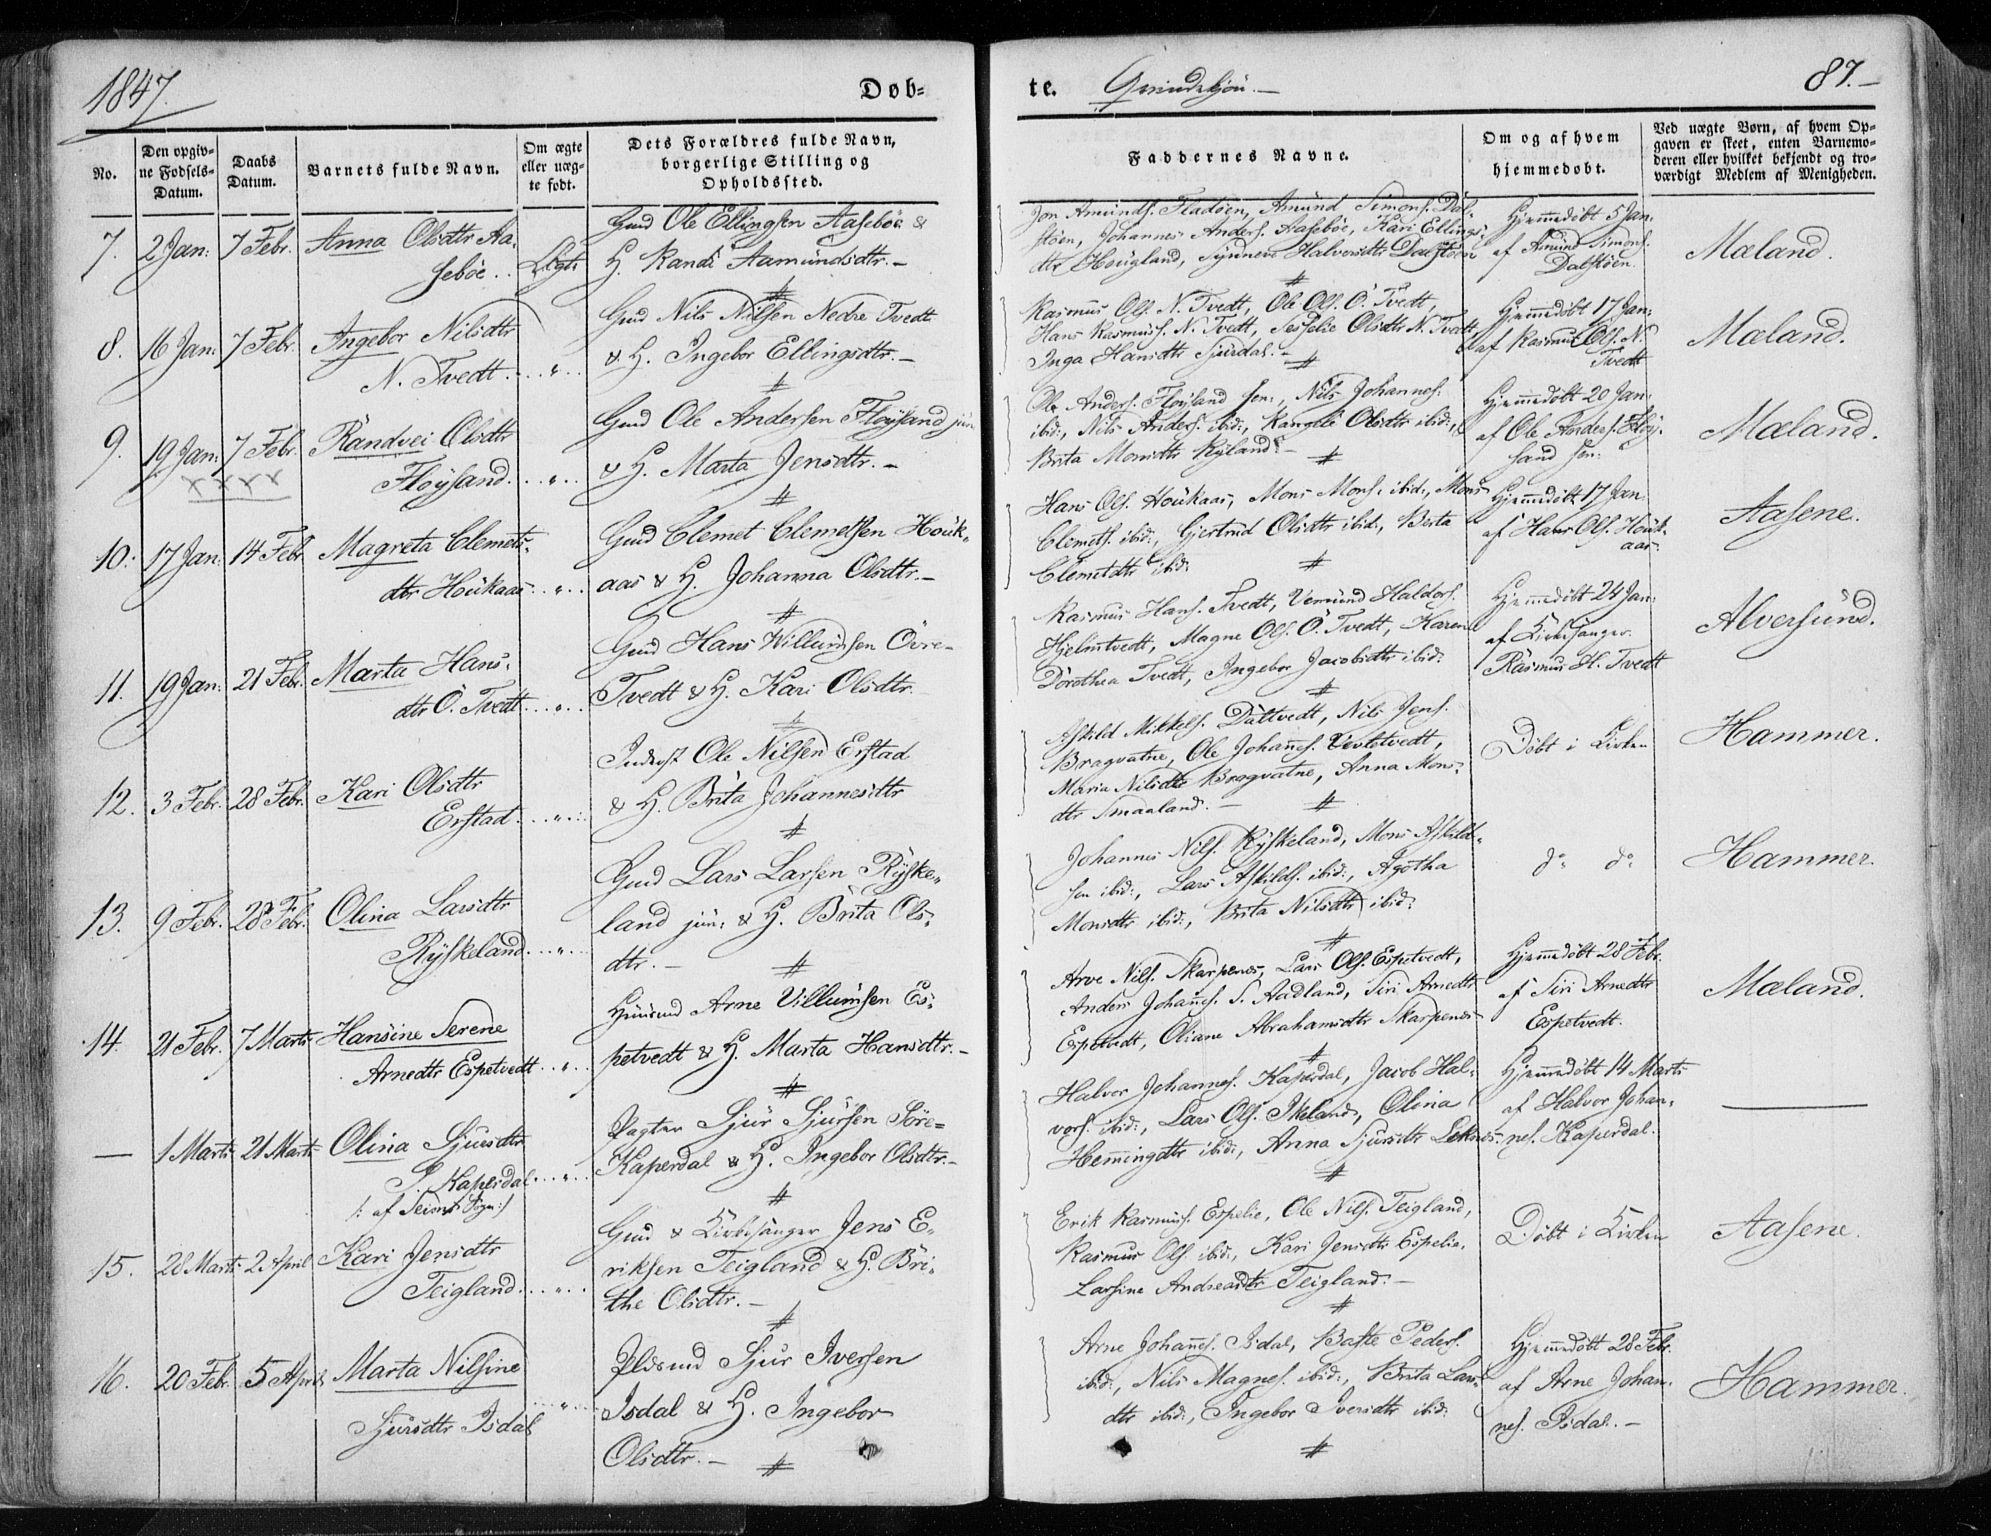 1847.
Døb-
te. Qvindekjön.—
87.—
No.
Den opgiv-
ne Fødsels-
Datum.
Daabs
Datum.
Barnets fulde Navn.
Om ægte
eller uæg-
te født.
Dets Forældres fulde Navn,
borgerlige Stilling og
Opholdssted.
Faddernes Navne.
Om og af hvem
hjemmedøbt.
Ved uægte Børn, af hvem Op-
gaven er skeet, enten Barnemo-
deren eller hvilket bekjendt og tro-
værdigt Medlem af Menigheden.
7. 2 Jan: 7 Febr. Anna Olsdtr Aa-
seböe
Gmd Ole Ellingsen Aaseböe &
H. Randi Aamundsdtr.—
Jon Amunds. Fladöen, Amund Simons. Dal-
stöen, Johannes Anders. Aaseböe, Kari Ellings-
dtr Hougland, Synneve Halversdtr Dalstöen
Hjemmedöbt 5 Jan:
af Amund Simons.
Dalstöen.
Mæland.
8. 16 Jan: 7 Febr. Angebor Nilsdtr
N. Tvedt.
Gmd Nils Nilsen Nedre Tvedt
& H. Ingebor Ellingsdtr.—
Rasmus Ols. N. Tvedt, Ole Ols. Ö. Tvedt,
Hans Rasmuss. N. Tvedt, Olsdtr N. Tvedt
Inga Hansdtr Sjurdal.—
Hjemmedöbt 17 Jan:
af Rasmus Ols. N.
Tvedt
Mæland.
9. 19 Jan: 7 Febr. Randvei Olsdtr
Flöysand.
Gmd Ole Andersen Flöysand jun
& H. Marta Jensdtr.—
Ole Anders. Flöysand sen:, Nils Johannes.
ibid:, Nils Anders. ibid:, Rangele Olsdtr ibid:,
Brita Monsdtr Ryland.—
Hjemmedöbt 20 Jan:
af Ole Anders. Flöy-
sand sen:
Mæland.
10. 17 Jan: 14 Febr Magreta Clemets-
dtr Houkaas
Gmd Clemet Clemetsen Houk-
aas & H. Johanna Olsdtr.—
Hans Ols. Houkaas, Mons Mons. ibid:, Mons
Clemets. ibid:, Gjertrud Olsdtr ibid:, Berta
Clemetdtr ibid:
Hjemmedöbt 17 Jan.
af Hans Ols. Houk-
aas.
Aasene.
11. 19 Jan: 21 Febr. Marta Hans-
dtr Ö. Tvedt
Gmd Hans Willumsen Övre-
Tvedt & H. Kari Olsdtr.
Rasmus Hans. Tvedt, Vemund Haldors.
Hjelmtvedt, Magne Ols. Ö. Tvedt, Karen
Dorothea Tvedt, Ingebor Jacobsdtr ibid:
Hjemmedöbt 24 Jan:
af Kirkesanger
Rasmus H. Tvedt
Alversund.
12. 3 Febr. 28 Febr. Kari Olsdtr
Erstad
Inderst Ole Nilsen Erstad
& H. Brita Johannesdtr
Askild Mikkels. Daltvedt, Nils Jens.
Bragvatne, Ole Johañes.
Maria Nilsdtr Bragvatne, Anna Mons-
dtr Smaaland.—
Döbt i Kirken
Hammer.
13. 9 Febr. 28 Febr. Olina Larsdtr
Ryskeland.
Gmd Lars Larsen Ryske-
land jun: & H. Brita Ols-
dtr.—
Johannes Nils. Ryskeland, Mons Askild-
sen ibid:, Lars Askilds. ibid:, Agotha
Monsdtr ibid:, Brita Nilsdtr ibid:
do do
Hammer.
14. 21 Febr. 7 Marts Hansine Serene
Arnedtr Espetvedt
Huusmd Arne Villumsen Es-
petvedt & H. Marta Hansdtr.—
Arve Nils. Skarpenes, Lars Ols. Espetvedt,
Anders Johañes. S. Aadland, Siri Arnedtr
Espetvedt, Oliane Abrahamsdtr Skarpenes
Hjemmedöbt 28 Febr.
af Siri Arnedtr
Espetvedt.
Mæland.
— 1 Marts 21 Marts Olina Sjursdtr
S. Kaperdal
/: af Seims Sogn :/
Pagter Sjur Sjursen Söre-
Kaperdal & H. Ingebor Olsdtr.—
Halvor Johannes. Kaperdal, Jacob Hal-
vors. ibid:, Lars Ols. Ikeland, Olina
Hemmingdtr ibid:, Anna Sjursdtr Leknes
Hjemmedöbt 14 Marts
af Halvor Johan-
nes. Kaperdal.
15. 28 Marts 2 April Kari Jensdtr
Teigland.
Gmd & Kirkesanger Jens E-
riksen Teigland & H. Bri-
the Olsdtr.—
Erik Rasmuss. Espelie, Ole Nils. Teigland,
Rasmus Ols. ibid:, Kari Jensdtr Espelie,
Larsine Andreasdtr Teigland.—
Döbt i Kirken
Aasene.
16. 20 Febr. 5 April Marta Nilsine
Sjursdtr Isdal
Pldsmd Sjur Iversen
Isdal & H. Ingebor
Olsdtr.—
Arne Johañes. Isdal, Baste Peders.
ibid:, Nils Magnes. ibid:, Brita Lars-
dtr ibid:, Ingebor Iversdtr ibid:
Hjemmedöbt 28 Febr.
af Arne Johan-
nes. Isdal.—
Hammer.